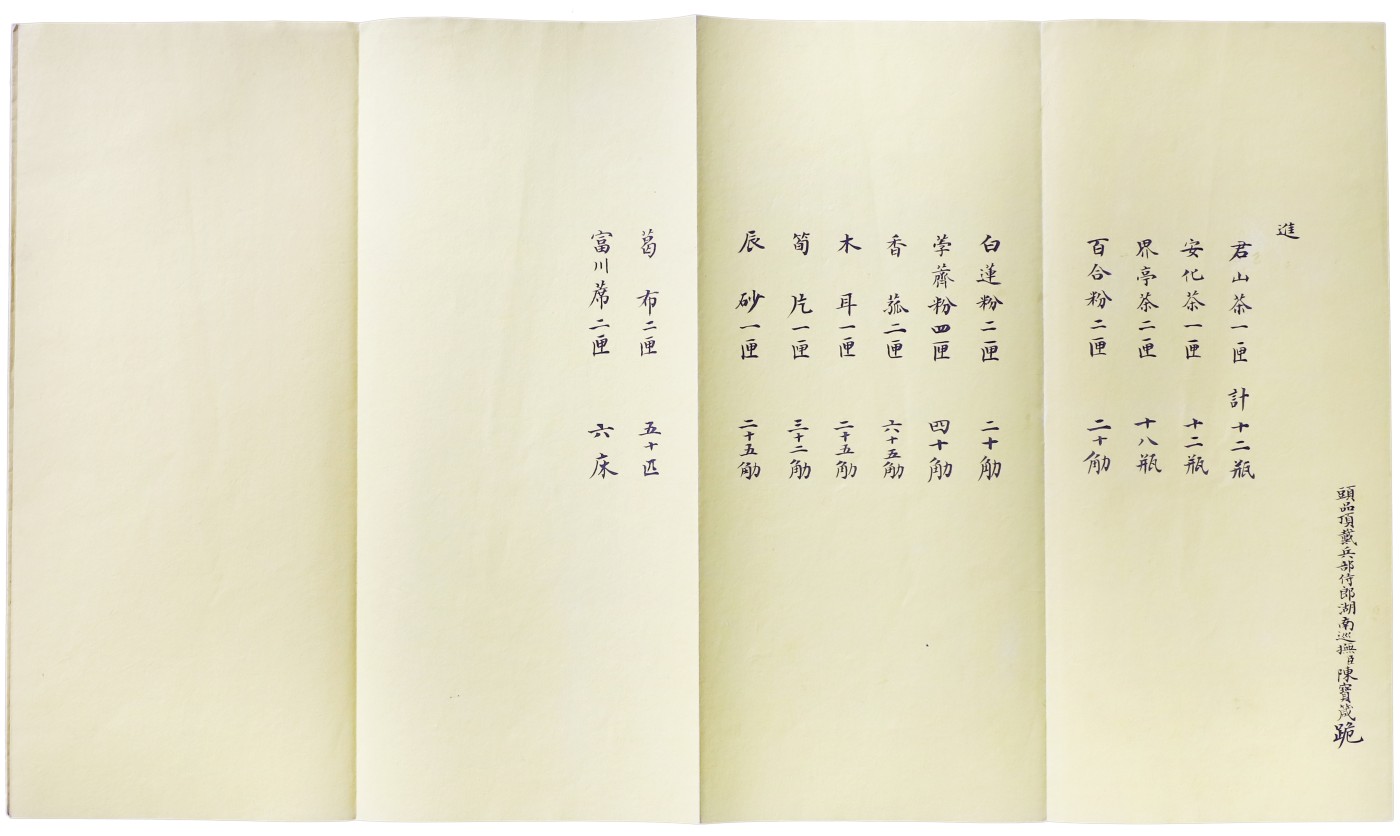 頭品頂戴兵部侍郎湖南巡撫臣陳寶箴跪
進
君山茶一匣 計十二瓶
安化茶一匣 十二瓶
界亭茶二匣 十八瓶
百合粉二匣 二十觔
白蓮粉二匣 二十觔
葧薺粉四匣 四十觔
香菰二匣 六十五觔
木耳一匣 二十五觔
筍片一匣 三十二觔
辰砂一匣 二十五觔
葛布二匣 五十匹
富川蓆二匣 六床